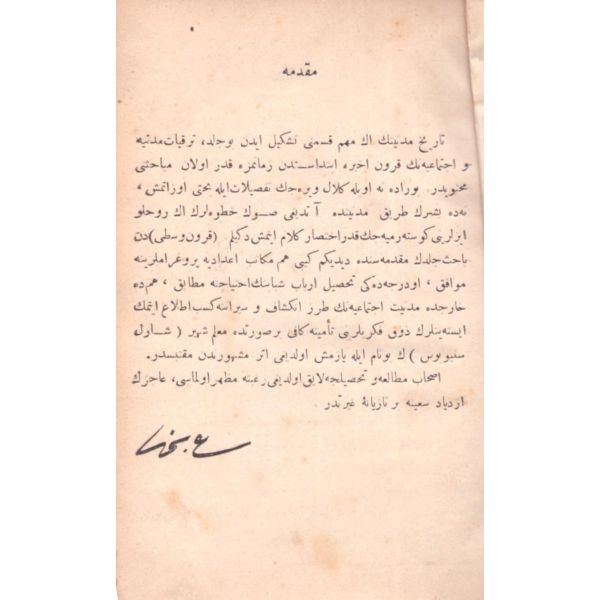 مقدمه
تاريخ مدنيتك اك مهم قسمنى تشكيل ايدن بوجلد، ترقيات مدنيه
و اجتماعيه‌نك قرون اخيره ابتداسندن زمانمزه قدر اولان مباحثنى
محتويدر. بوراده نه اويله كلال ويره‌جك تفصيلات ايله بحثى اوزاتمش،
نه‌ده بشرك طريق مدنيتده آتديغى صوك خطوه‌لرك اك روحلو
ايزلرينى كوسترميه‌جك قدر اختصار كلام ايتمش دكلم. (قرون وسطى) دن
باحث جلدك مقدمه‌سنده ديديكم كبى هم مكاتب اعداديه پروغراملرينه
موافق، او درجه‌ده‌كى تحصيل ارباب شبابنك احتياجنه مطابق، هم‌ده
خارجده مدنيت اجتماعيه‌نك طرز انكشاف و سيرانه كسب اطلاع ايتمك
ايسته‌ينلرك ذوق فكريلرينى تأمينه كافى بر صورتده معلم شهير (شارل
سنيوبوس) ك بونام ايله يازمش اولديغى اثر مشهورندن مقتبسدر.
اصحاب مطالعه و تحصيلجه لايق اولديغى رغبته مظهر اولماسى، عاجزك
ازدياد سعينه بر تازيانهٔ غيرتدر.